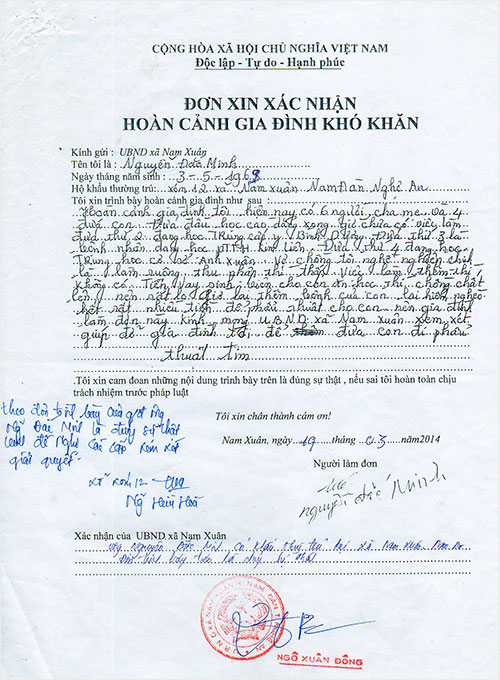 CỘNG HÒA XÃ HỘI CHỦ NGHĨA VIỆT NAM
Độc lập - Tự do - Hạnh phúc
ĐƠN XIN XÁC NHẬN
HOÀN CẢNH GIA ĐÌNH KHÓ KHĂN
Kính gửi : UBND xã Nam Xuân
Tên tôi là : Nguyễn Đức Minh
Ngày tháng năm sinh : 3-5-1968
Hộ khẩu thường trú: xóm 12 xã Nam xuân Nam Đàn Nghệ An
Tôi xin trình bày hoàn cảnh gia đình như sau :
Hoàn cảnh gia đình tôi hiện nay có 6 người cha mẹ và 4
đứa con. Đứa đầu học cao đẳng xong giờ chưa có việc làm
đứa thứ 2 đang học Trung cấp y Bình Dương. Đứa thứ 3 là
bệnh nhân đang học PTTH kim liên. Đứa thứ 4 đang học
Trung học cơ sở Anh Xuân. Vợ chồng tôi nghề nghiệp chính
là làm ruộng thu nhập thì thấp. Việc làm thêm thì
không có. Tiền vay sinh viên cho con ăn học thì chồng chất
lên nên rất lo. giờ lại thêm bệnh của con lại hiểm nghèo
hết rất nhiều tiền để phẫu thuật cho con nên gia đình
làm đơn này kính mong UBND xã Nam Xuân xem xét
giúp đỡ gia đình tôi để đưa con đi phẫu
thuật tim
.Tôi xin cam đoan những nội dung trình bày trên là đúng sự thật , nếu sai tôi hoàn toàn chịu
trách nhiệm trước pháp luật
Tôi xin chân thành cám ơn!
Nam Xuân, ngày 19 tháng 03 năm 2014
Người làm đơn
nguyễn đức Minh
theo đơn trình bày của gđ ông
Ng Đức Minh là đúng sự thật
kính đề nghị các cấp xem xét
giải quyết.
xóm 12
Ng Hữu Hoà
Xác nhận của UBND xã Nam Xuân
Ông Nguyễn Đức Minh có khẩu thường trú tại xã Nam Xuân
là đúng sự thật
NGÔ XUÂN ĐÔNG